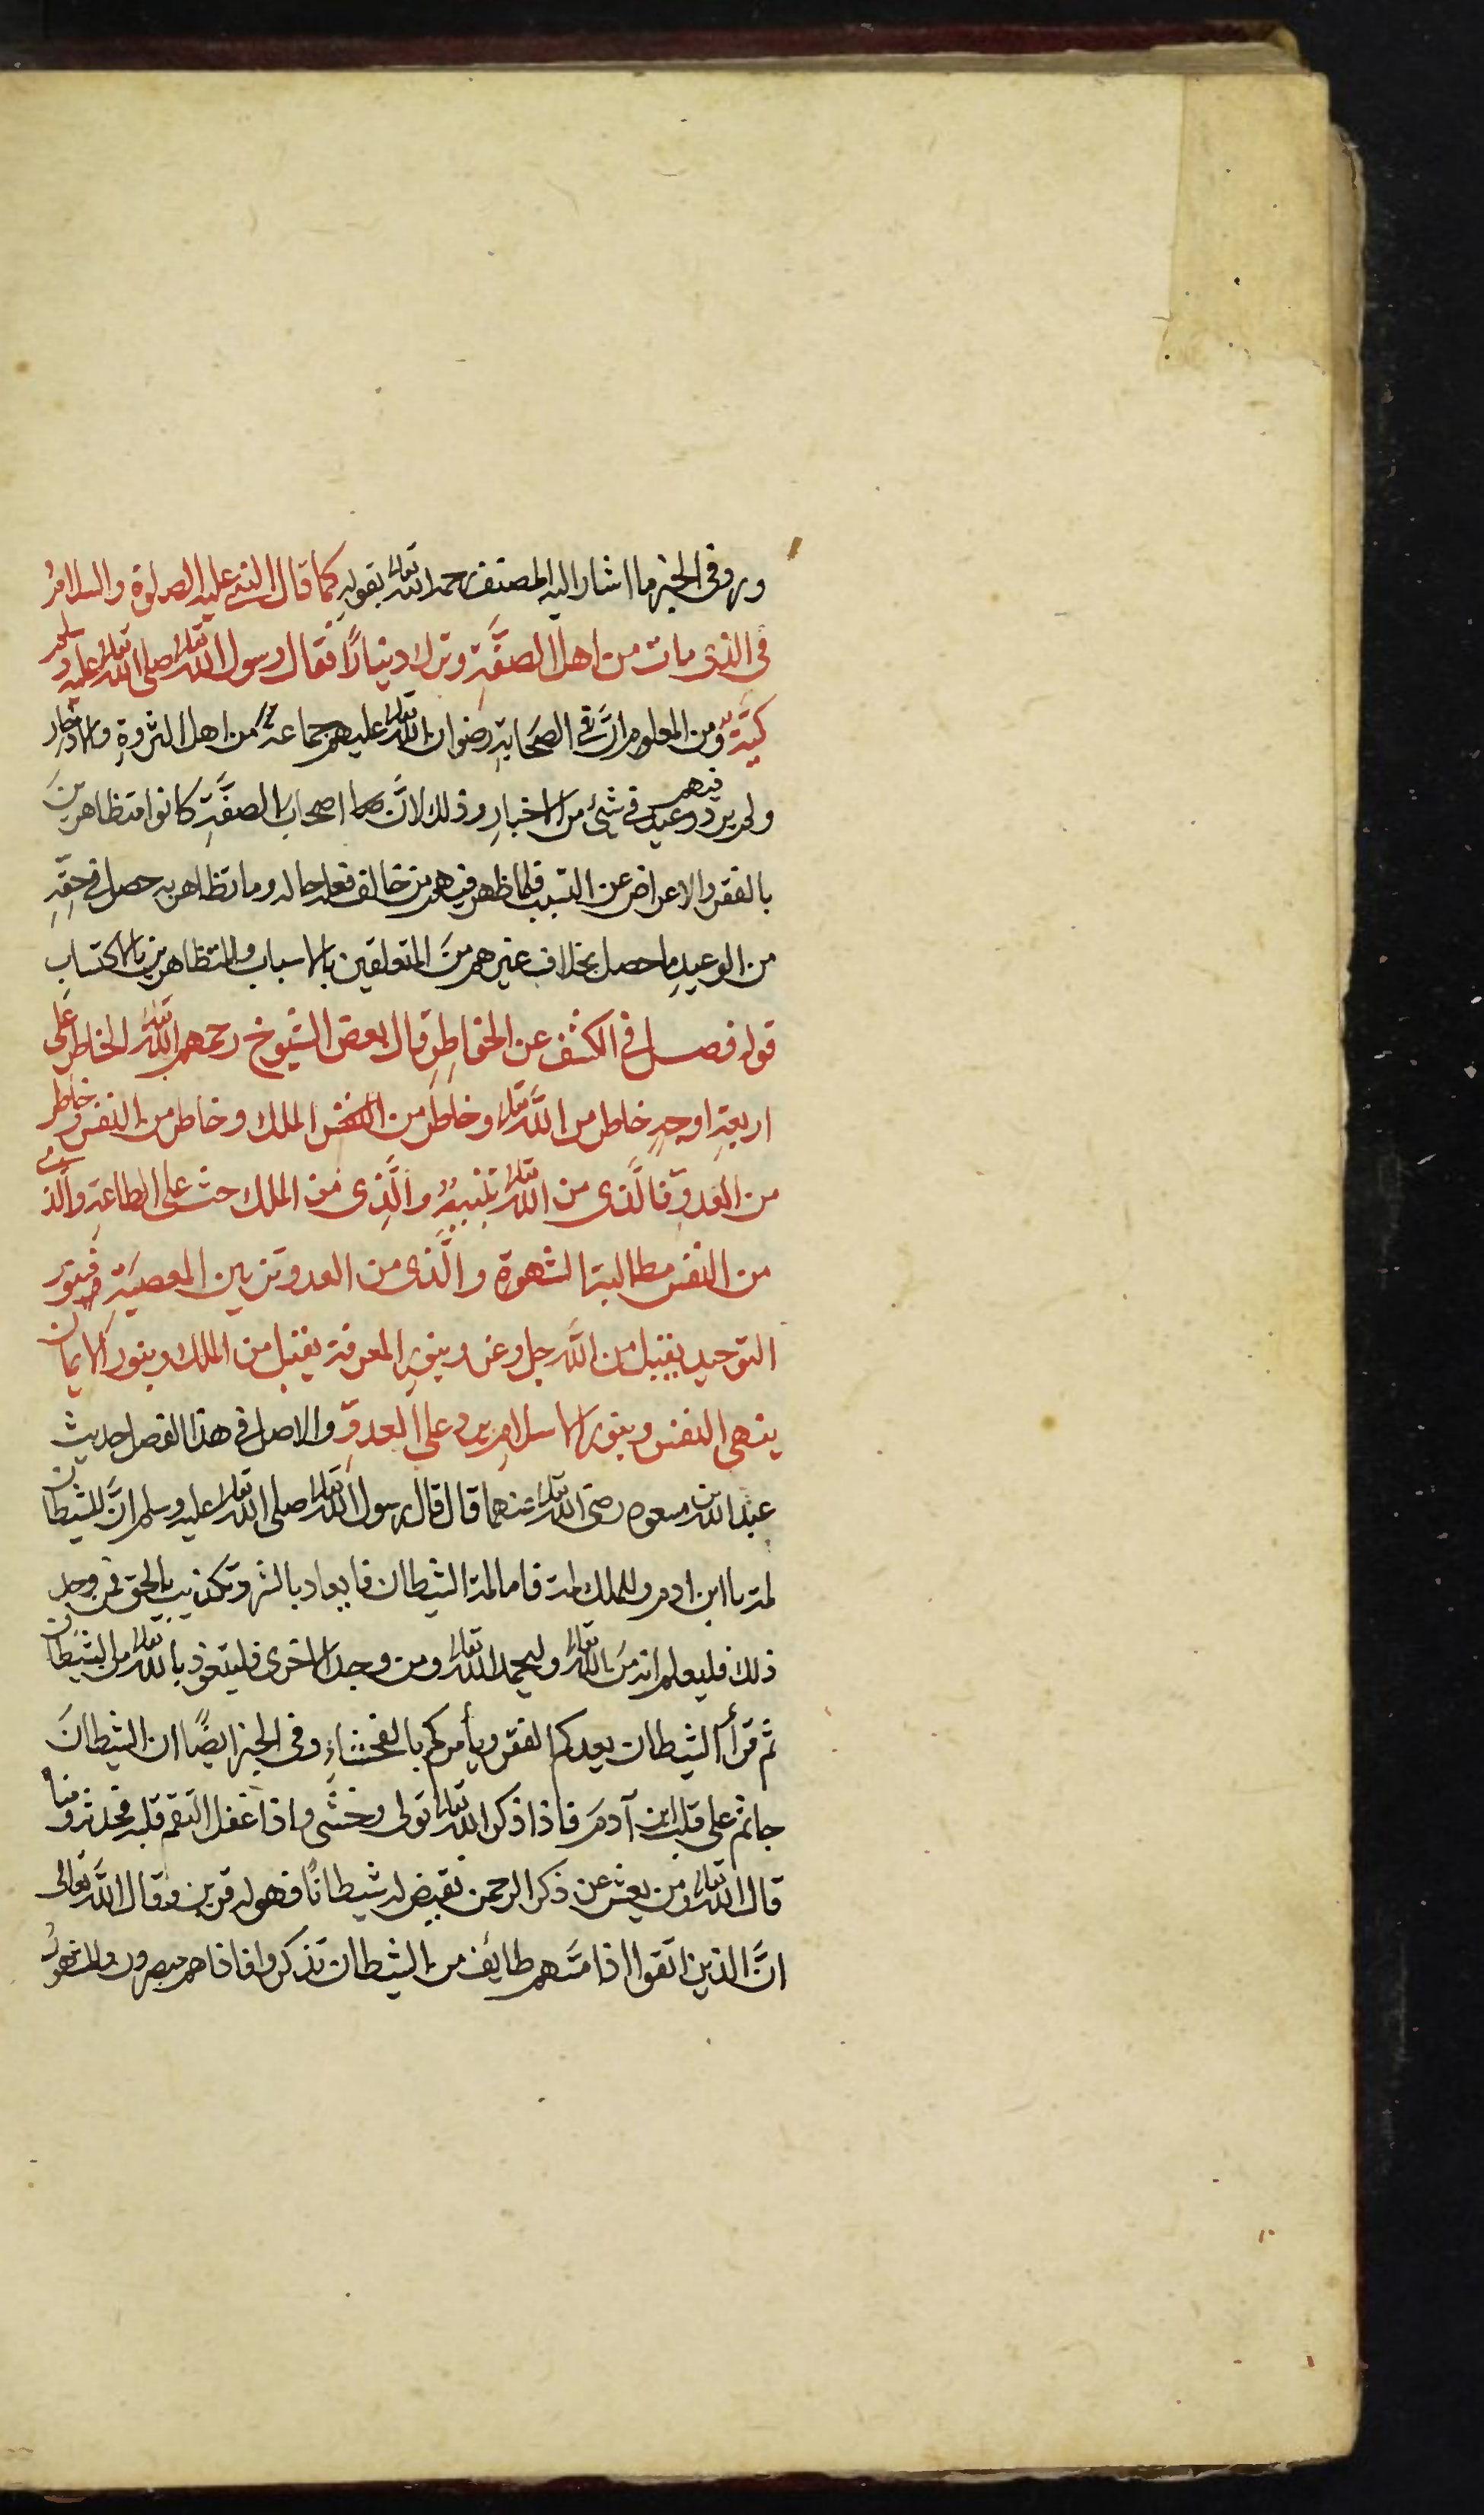 وروى في الخبر ما اشار اليه المصنف رحمه الله تعالى بقوله كما قال النبي عليه الصلوة والسلام
في الذى مات من اهل الصفّةِ وترك دينارًا فقال رسول الله تعالى صلى الله تعالى عليه وسلم
كيّةٌ ومن المعلوم انّ في الصحابةِ رضوان الله تعالى عليهم جماعة من اهل الثروةِ والادخار
ولم يرد فيهم وعيد في شئ من الاخبارِ وذلك لانّ اصحاب الصفّةِ كانوا متظاهرينَ
بالفقر والاعراض عن التسبب فلما ظهر فيهم من خالف فعله حاله وما تظاهر به حصل في حقّهِ
من الوعيدِ ما حصل بخلاف غيرهم منَ المتعلقين بالاسباب والمتظاهرين بالاكتساب
قوله فصل في الكشف عن الخواطِرِ قال بعض الشيوخ رحمهم الله تعالى الخاطر على
اربعةِ اوجهٍ خاطر من الله تعالى وخاطر من الملك وخاطر من النفس وخاطر
من العدوِّ فالّذى من الله تعالى تنبيهٌ والّذى من الملك حث على الطاعةِ والّذى
من النفس مطالبة الشهوة والّذى من العدو تزيين المعصيَةِ فبنور
التوحيد يقبل من اللّه جل وعز وبنورِ المعرفة يقبل من الملك وبنور الايمان
ينهى النفس وبنور الاسلامِ يرد على العدوِّ والاصل في هذا الفصل حديث
عبد الله بن مسعود رضى الله تعالى عنهما قال قال رسول الله تعالى صلى الله تعالى عليه وسلم انّ للشيطان
لمة بابن ادم وللملك لمة فاما لمة الشيطان فايعاد بالشر وتكذيب بالحق فمن وجد
ذلك فليعلم انه منَ الله تعالى وليحمد الله تعالى ومن وجد الاخرى فليتعوذ بالله تعالى من الشيطان
ثم قرأ الشيطان يعدكم الفقر ويأمركم بالفحشاءِ وفى الخبر ايضًا ان الشيطانَ
جاثم على قلب ابن آدمَ فاذا ذكر الله تعالى تولى وخنس واذا غفل التقم قلبه فحدثه ومنّاه
قال الله تعالى ومن يعش عن ذكر الرحمن نقيض له شيطانًا فهو له قرين وقال اللّه تعالى
انّ الذين اتّقوا اذا مسّهم طايف من الشيطان تذكروا فاذا هم مبصرون